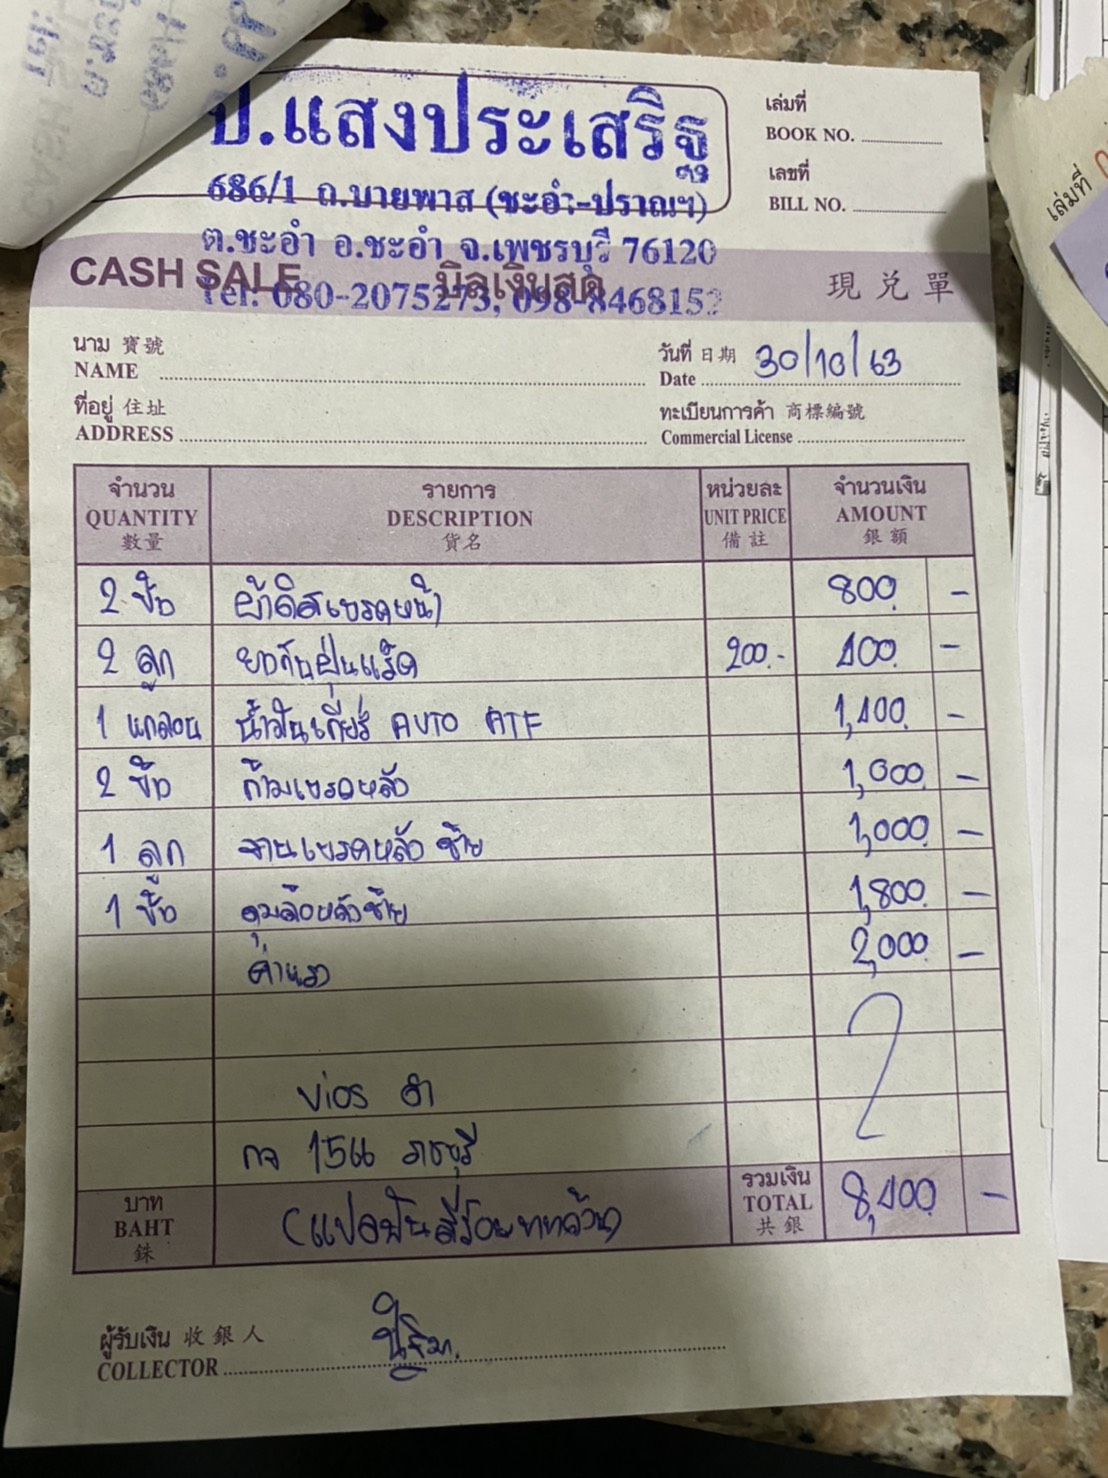 ป.แสงประเสริฐ
686/1 ถ.บายพาส (ชะอำ-ปราณฯ)
ต.ชะอำ อ.ชะอำ จ.เพชรบุรี 76120
Tel. 080-2075273, 098-8468152
เล่มที่
BOOK NO.
เลขที่
BILL NO.
CASH SALE บิลเงินสด 現兌單
นาม 寶號
NAME
วันที่ 日期 30/10/63
Date
ที่อยู่ 住址
ADDRESS
ทะเบียนการค้า 商標編號
Commercial License
จำนวน รายการ หน่วยละ จำนวนเงิน
QUANTITY DESCRIPTION UNIT PRICE AMOUNT
數量 貨名 備註 銀額
2 ชิ้น ผ้าดิสเบรคหน้า 800 -
2 ลูก ยางกันฝุ่นแร็ค 200.- 400 -
1 แกลอน น้ำมันเกียร์ AUTO ATF 1,400 -
2 ชิ้น ก้ามเบรคหลัง 1,000 -
1 ลูก จานเบรคหลัง ซ้าย 1,000 -
1 ชิ้น ดุมล้อหลังซ้าย 1,800 -
ค่าแรง 2,000 -
Vios ดำ
กจ 1566 ราชบุรี
บาท
BAHT
銖
(แปดพันสี่ร้อยบาทถ้วน)
รวมเงิน
TOTAL
共銀
8,400 -
ผู้รับเงิน 收銀人
COLLECTOR
เล่มที่